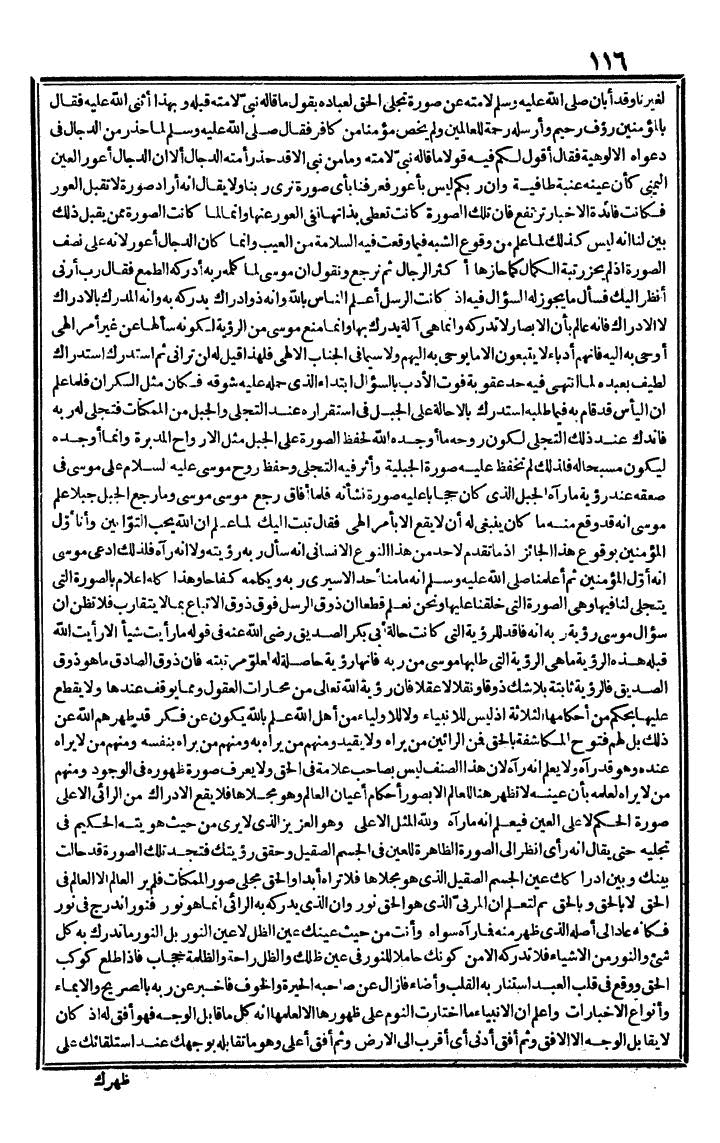 ١١٦
لغيرنا وقد أبان صلى الله عليه وسلم لامته عن صورة تجلى الحق لعباده بقول ما قاله نبي لامته قبله وبهذا أثنى الله عليه فقال
بالمؤمنين رؤف رحيم وأرسله رحمة للعالمين ولم يخص مؤمنا من كافر فقال صلى الله عليه وسلم لما حذر من الدجال فى
دعواه الالوهية فقال أقول لكم فيه قولا ما قاله نبي لامته وما من نبي الا قد حذر أمته الدجال ألا ان الدجال أعور العين
اليمنى كأن عينه عنبة طافية وان ربكم ليس بأعور فعرفنا بأى صورة نرى ربنا ولا يقال انه أراد صورة لا تقبل العور
فكانت فائدة الاخبار ترتفع فان تلك الصورة كانت تعطى بذاتها نفى العور عنها وانما لما كانت الصورة ممن يقبل ذلك
بين لنا انه ليس كذلك لما علم من وقوع الشبه فيما وقعت فيه السلامة من العيب وانما كان الدجال أعور لانه على نصف
الصورة اذ لم يحز رتبة الكمال كما حازها أكثر الرجال ثم نرجع ونقول ان موسى لما كلمه ربه أدركه الطمع فقال رب أرنى
أنظر اليك فسأل ما يجوز له السؤال فيه اذ كانت الرسل أعلم الناس بالله وانه ذو ادراك يدركه به وانه المدرك بالادراك
لا الادراك فانه عالم بأن الابصار لا تدركه وانما هى آلة يدرك بها وانما منع موسى من الرؤية لكونه سألها عن غير أمر الهى
أوحى به اليه فانهم أدباء لا يتبعون الا ما يوحى به اليهم ولا سيما فى الجناب الالهى فلهذا قيل له لن ترانى ثم استدرك استدراك
لطيف بعبده لما انتهى فيه حد عقوبة فوت الأدب بالسؤال ابتداء الذى حمله عليه شوقه فكان مثل السكران فلما علم
ان اليأس قد قام به فيما طلبه استدرك بالاحالة على الجبل فى استقراره عند التجلى والجبل من الممكنات فتجلى له ربه
فاندك عند ذلك التجلى لكون روحه ما أوجده الله لحفظ الصورة على الجبل مثل الارواح المدبرة وانما أوجده
ليكون مسبحا له فلذلك لم تحفظ عليه صورة الجبلية وأثر فيه التجلى وحفظ روح موسى عليه السلام على موسى فى
صعقه عند رؤية ما رآه الجبل الذى كان حجابا عليه صورة نشأته فلما أفاق رجع موسى موسى وما رجع الجبل جبلا علم
موسى انه قد وقع منه ما كان ينبغى له أن لا يقع الا بأمر الهى فقال تبت اليك لما علم ان الله يحب التوابين وأنا أول
المؤمنين بوقوع هذا الجائز اذ ما تقدم لاحد من هذا النوع الانسانى انه سأل ربه رؤيته ولا انه رآه فلذلك ادعى موسى
انه أول المؤمنين ثم أعلمنا صلى الله عليه وسلم انه ما منا أحد الا سيرى ربه ويكلمه كفاحا وهذا كله اعلام بالصورة التى
يتجلى لنا فيها وهى الصورة التى خلقنا عليها ونحن نعلم قطعا ان ذوق الرسل فوق ذوق الاتباع بما لا يتقارب فلا تظن ان
سؤال موسى رؤية ربه انه فاقد للرؤية التى كانت حالة أبى بكر الصديق رضى الله عنه فى قوله ما رأيت شيأ الا رأيت الله
قبله هذه الرؤية ما هى الرؤية التى طلبها موسى من ربه فانها رؤية حاصلة له لعلو مرتبته فان ذوق الصادق ما هو ذوق
الصديق فالرؤية ثابتة بلا شك ذوقا ونقلا لا عقلا فان رؤية الله تعالى من محارات العقول ومما يوقف عندها ولا يقطع
عليها بحكم من أحكامها الثلاثة اذ ليس للانبياء ولا للاولياء من أهل الله علم بالله يكون عن فكر قد طهرهم الله عن
ذلك بل لهم فتوح المكاشفة بالحق فمن الرائين من يراه ولا يقيد ومنهم من يراه به ومنهم من يراه بنفسه ومنهم من لا يراه
عنده وهو قد رآه ولا يعلم انه رآه لان هذا الصنف ليس بصاحب علامة فى الحق ولا يعرف صورة ظهوره فى الوجود ومنهم
من لا يراه لعلمه بأن عينه لا تظهر هنا للعالم الا بصور أحكام أعيان العالم وهو مجلاها فلا يقع الادراك من الرائى الا على
صورة الحكم لا على العين فيعلم انه ما رآه ولله المثل الاعلى وهو العزيز الذى لا يرى من حيث هويته الحكيم فى
تجليه حتى يقال انه رأى انظر الى الصورة الظاهرة للعين فى الجسم الصقيل وحقق رؤيتك فتجد تلك الصورة قد حالت
بينك وبين ادراكك عين الجسم الصقيل الذى هو مجلاها فلا تراه أبدا والحق مجلى صور الممكنات فلم ير العالم الا العالم فى
الحق لا بالحق وبالحق ثم لتعلم ان المرئى الذى هو الحق نور وان الذى يدركه به الرائى انما هو نور فنور اندرج فى نور
فكأنه عاد الى أصله الذى ظهر منه فما رآه سواه وأنت من حيث عينك عين الظل لا عين النور بل النور ما تدرك به كل
شئ والنور من الاشياء فلا تدركه الا من كونك حاملا للنور فى عين ظلك والظل راحة والظلمة حجاب فاذا طلع كوكب
الحق ووقع فى قلب العبد استنار به القلب وأضاء فأزال عن صاحبه الحيرة والخوف فأخبر عن ربه بالصريح والايماء
وأنواع الاخبارات واعلم ان الانبياء ما اختارت النوم على ظهورها الا لعلمها انه كل ما قابل الوجه فهو أفق له اذ كان
لا يقابل الوجه الا الافق وثم أفق أدنى أى أقرب الى الارض وثم أفق أعلى وهو ما تقابله بوجهك عند استلقائك على
ظهرك